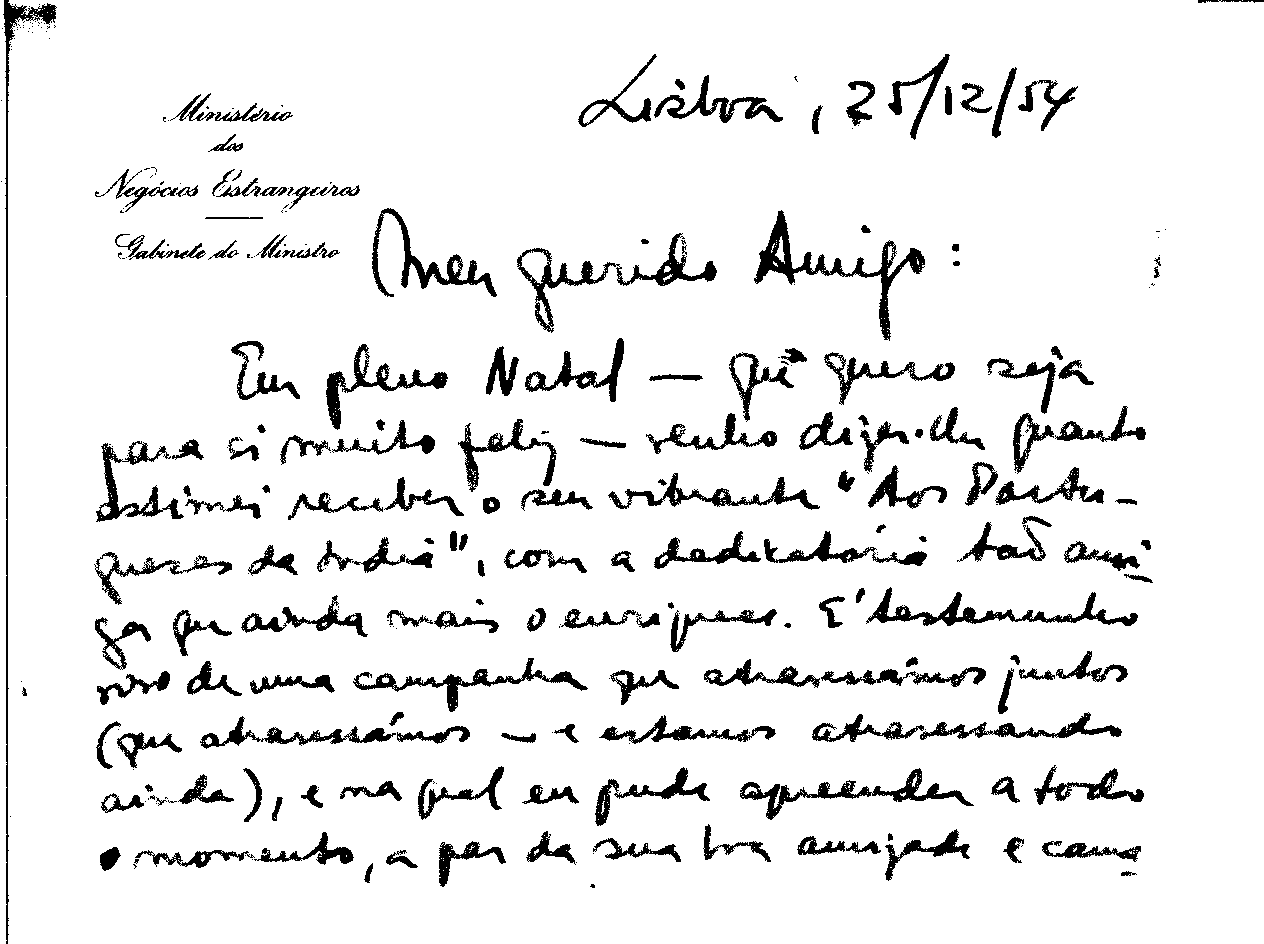 Lisboa, 25/12/54
Ministério
dos
Negócios Estrangeiros
Gabinete do Ministro
Meu querido Amigo:
Em pleno Natal — que quero seja
para si muito feliz — venho dizer-lhe quanto
estimei receber o seu vibrante "Aos Portu-
gueses da India", com a dedicatória tão ami-
ga que ainda mais o enriquece. É testemunho
vivo de uma campanha que atravessámos juntos
(que atravessámos — e estamos atravessando
ainda), e na qual eu pude apreender a todo
o momento, a par da sua boa amizade e cama-